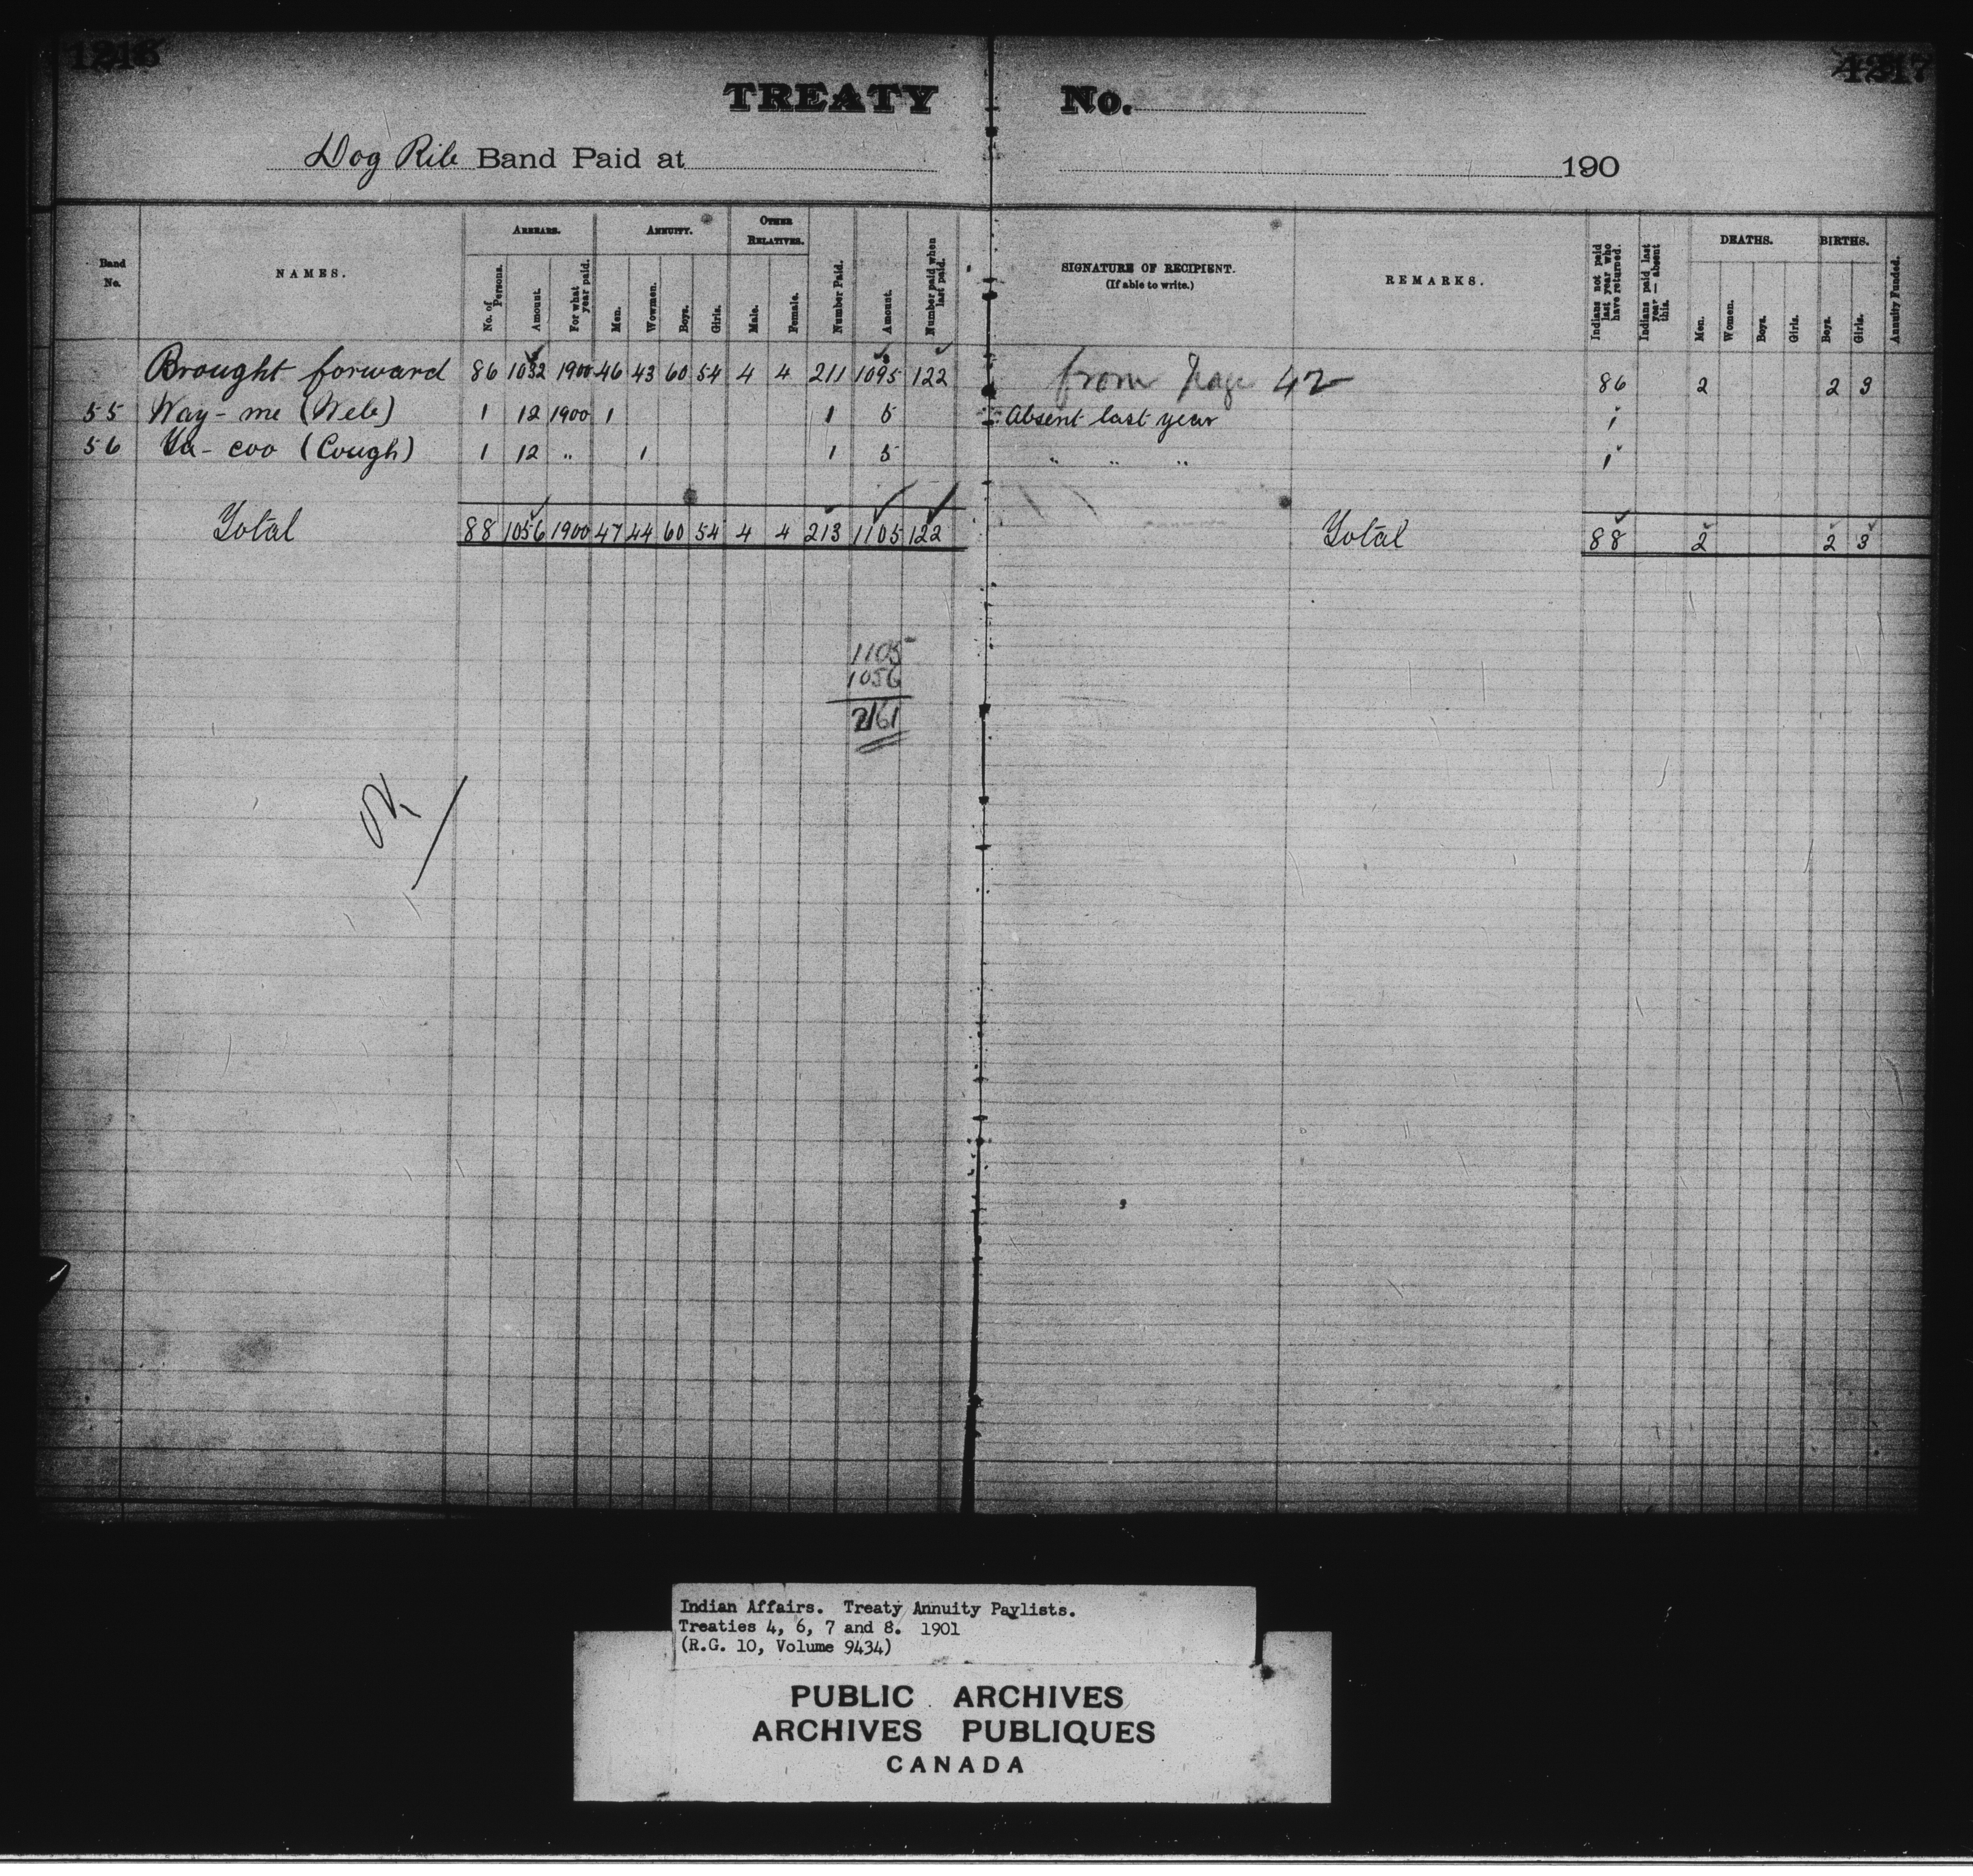 1216 1217
TREATY No.
Dog Rib Band Paid at 190
Band No. NAMES. ARREARS. ANNUITY. OTHER RELATIVES. Number Paid. Amount. Number paid when last paid. SIGNATURE OF RECIPIENT. (If able to write.) REMARKS. Indians not paid last year who have returned. Indians paid last year — absent this. DEATHS. BIRTHS. Annuity Funded.
No. of Persons. Amount. For what year paid. Men. Wowmen. Boys. Girls. Male. Female. Men. Women. Boys. Girls. Boys. Girls.
Brought forward 86 1032 1900 46 43 60 54 4 4 211 1095 122 from Page 42 86 2 2 3
55 Way-me (Web) 1 12 1900 1 1 5 Absent last year 1
56 Ya-coo (Cough) 1 12 " 1 1 5 " " " 1
Total 88 1056 1900 47 44 60 54 4 4 213 1105 122 Total 88 2 2 3
1105
1056
2161
OK
Indian Affairs. Treaty Annuity Paylists.
Treaties 4, 6, 7 and 8. 1901
(R.G. 10, Volume 9434)
PUBLIC ARCHIVES
ARCHIVES PUBLIQUES
CANADA